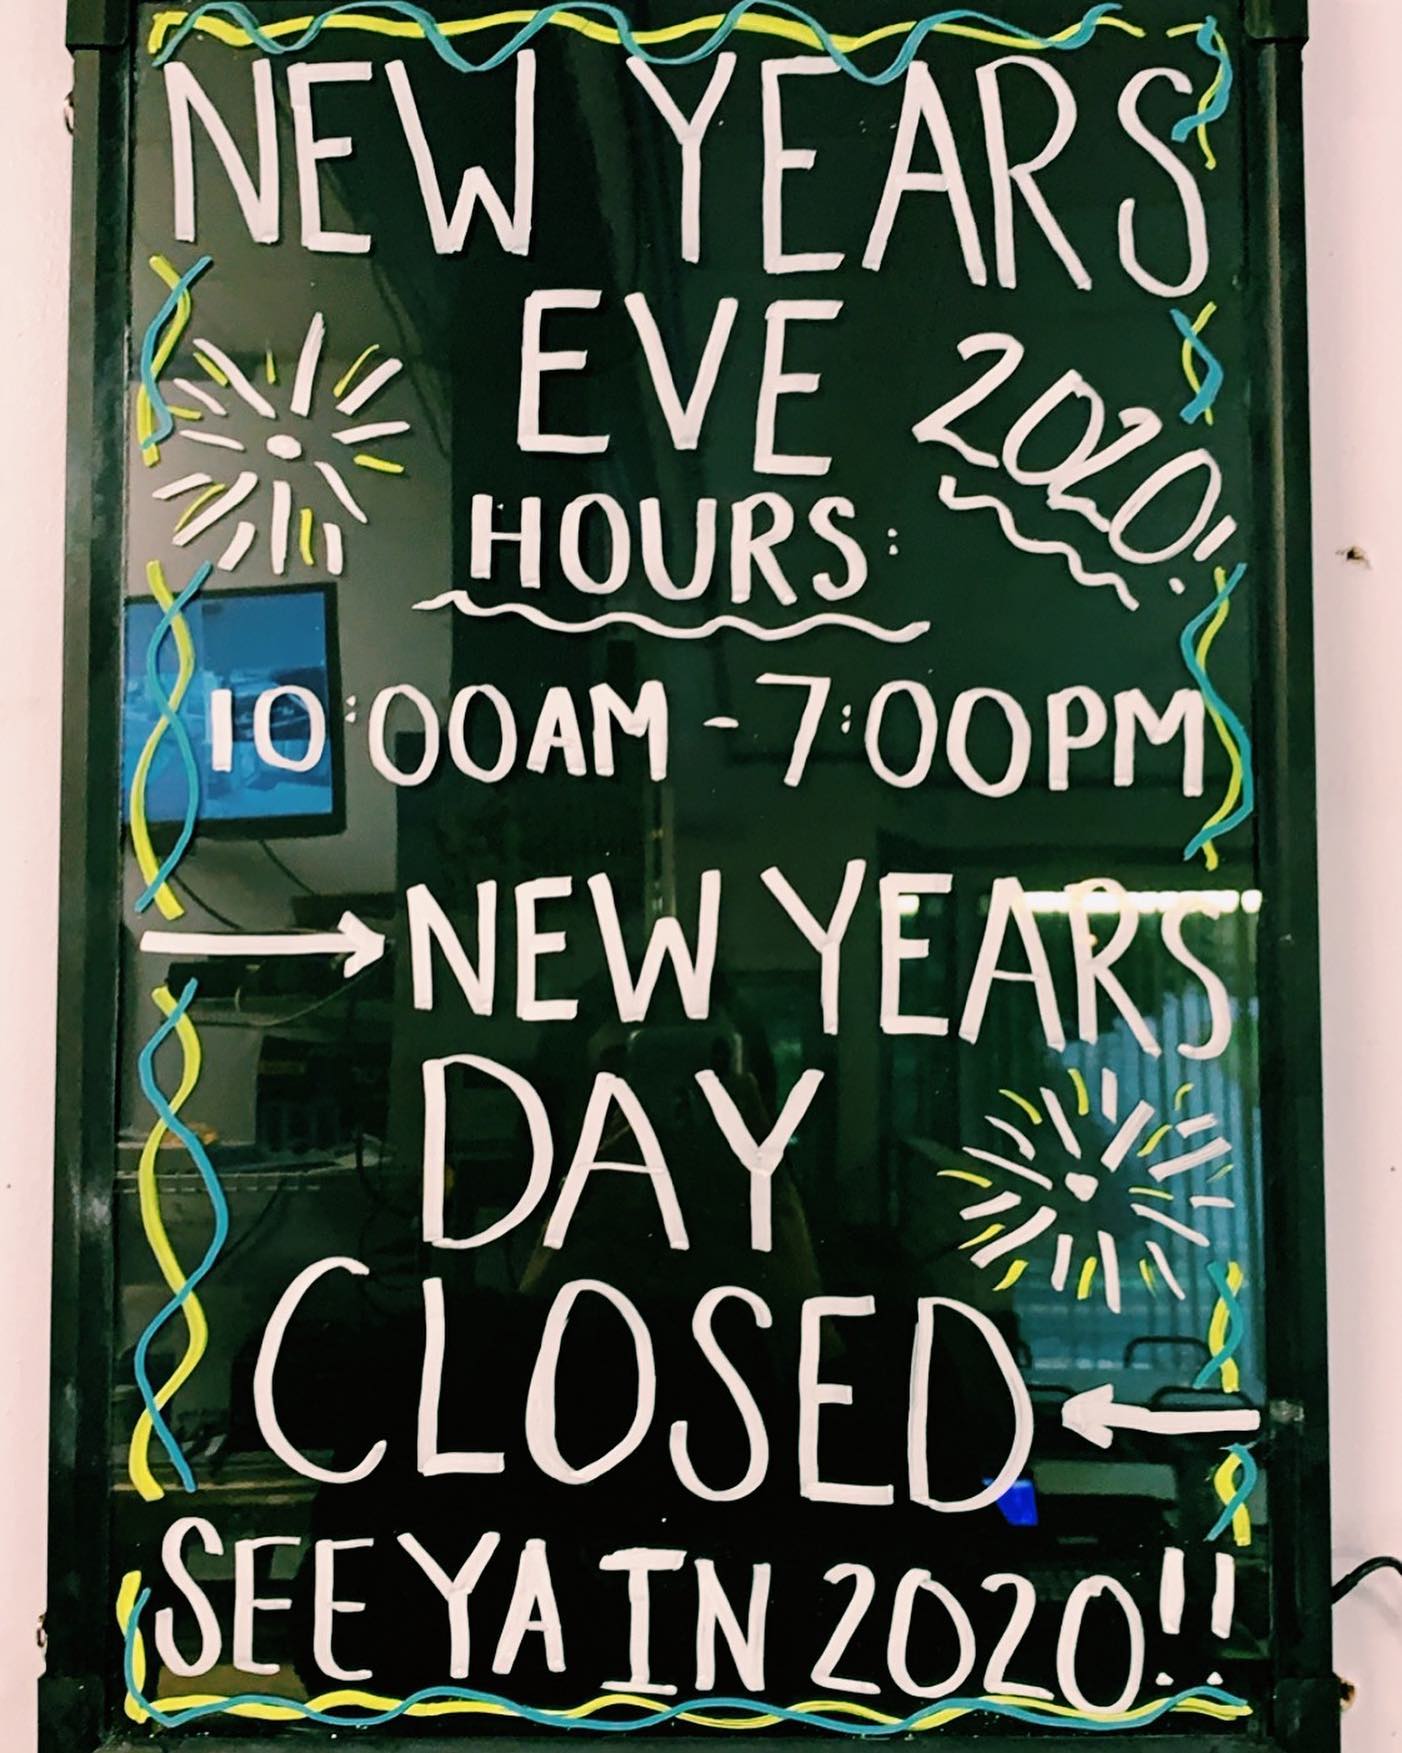 NEW YEARS
EVE
2020!
HOURS:
10:00AM - 7:00PM
NEW YEARS
DAY
CLOSED
SEE YA IN 2020!!